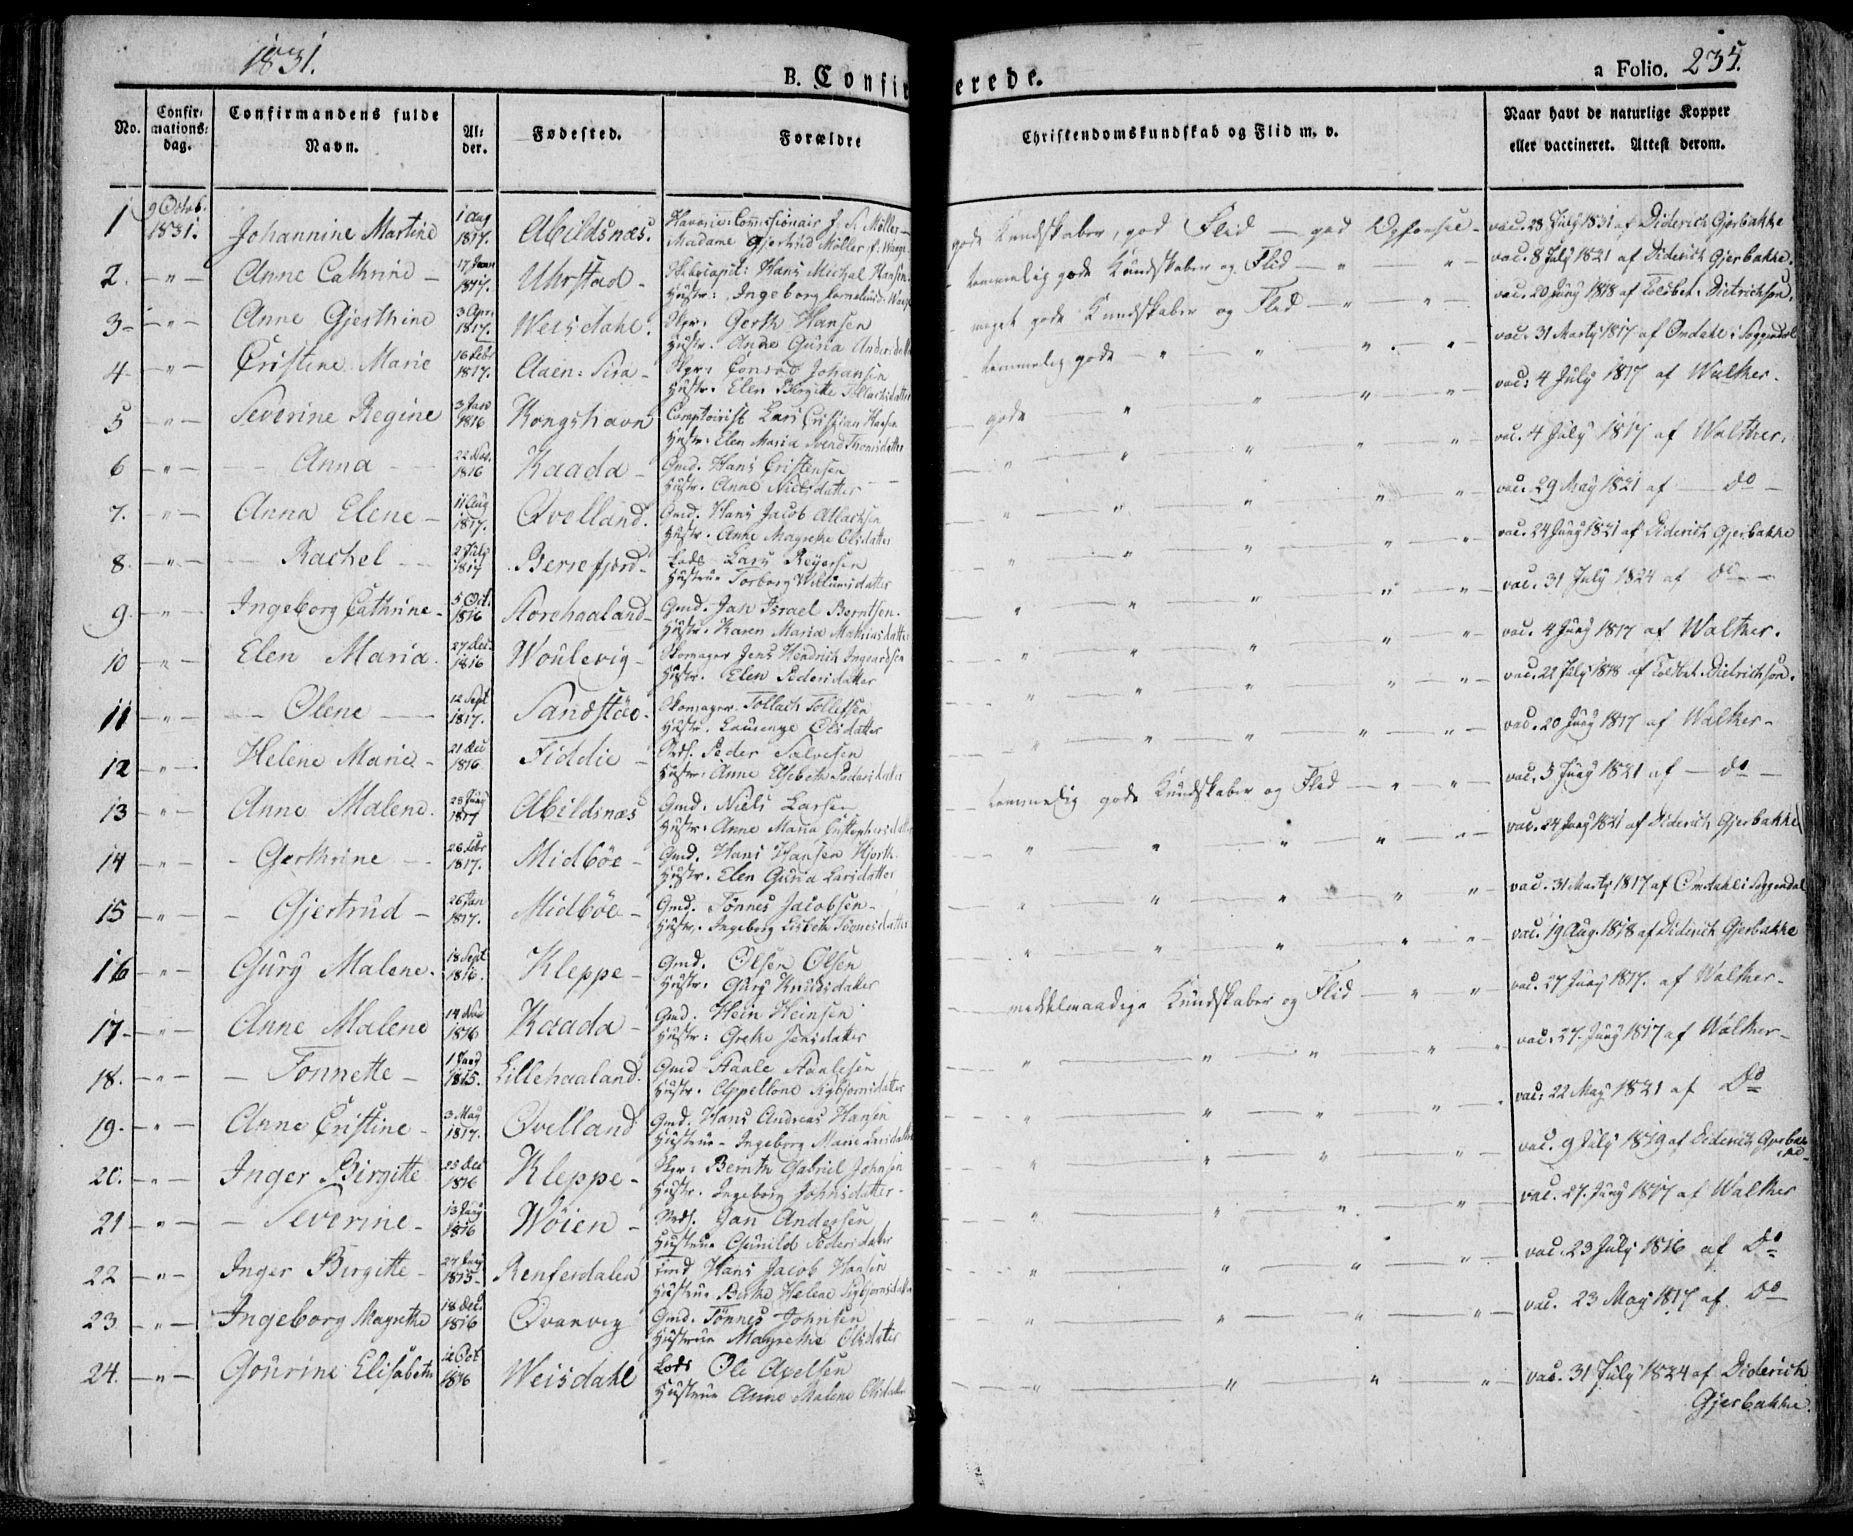 1831.
B. Confir
erede.
a Folio. 235.
No. Confir: mations: dag. Confirmandens fulde Navn. Al: der. Fødested. Forældre Christendomskundskab og Flid m. v. Naar havt de naturlige Kopper eller vaccineret. Attest derom.
1 9 Octob. 1831. Johannine Martine 1 Aug 1817. Abildsnæs. Møller Madame Gjertrud Møller f. gode Kundskaber, god Flid — god Opførsel - vac. 28 July 1831 af Diderich Gjerbakke
2. - " - Anne Cathrine - 17 1817. Uhrstad - Hans Michal Hansen Hustr: Ingeborg temmelig gode Kundskaber og Flid — " — " - vac. 8 July 1821 af Diderich Gjerbakke.
3 - " - Anne Gjesthine 3 Apr: 1817. Weisdahl. Gerth Hansen Hustr. Anne Guria meget gode Kundskaber og Flid — " — " - vac. 20 Juny 1818 af Dietrichson.
4 - " - Cristine Marie 16 Febr 1817. Aaen: Sira - Conrad Johansen Hustr. Elen Birgitte temmelig gode - " — " — " - " vac. 31 Marty 1817 af Omdahl i Soggendal
5 - " - Severine Regine 3 1816 Kongshavn Comptoirist Lars Cristian Hansen Hustr: Elen Maria gode " — " — " - " - vac: 4 July 1817 af Walther.
6 - " - Anna - - 22 1816 Kaada - Gmd. Hans Cristensen Hustr. Anne Nielsdatter - " — " — " — " - " - vac. 4 July 1817 af Walther.
7. - " - Anna Elene - 11 Aug 1817. Qvelland. Gmd. Hans Jacob Atlachsen Hustr. Anne Magrethe Olsdatter " — " — " — " - " - vac. 29 May 1821 af — do -
8 - " - Rachel - - 2 July 1817 Berrefjord - Lods Lars Reyersen Hustrue Torborg Willumsdatter " — " — " — " - " - vac. 24 Juny 1821 af Diderich Gjerbakke
9 - " - Ingeborg Cathrine - 5 Oct. 1816 Storehaaland Gmd. Jan Israel Berntsen. Hustr. Karen Maria Mathiasdatter " — " — " — " - " - vac. 31 July 1824 af Do - -
10 - " - Elen Maria. 27 Dec. 1816 Woulevig - Skomager Jens Hendrich Ingvardsen Hustr. Elen Pedersdatter " — " — " — " - " - vac. 4 Juny 1817 af Walther.
11 - " - Olene - - 12 Sept 1817. Sandstøe - Skomager Tollach Tollefsen Hustr. Olsdatter " — " — " — " - " - vac. 22 July 1818 af Dietrichson.
12 - " - Helene Marie - 21 Dec 1816 Fiddie - Peder Salvesen Hustr: Anne Elsebeth Pedersdatter " — " — " — " - " - vac. 20 Juny 1817 af Walther -
13 - " - Anne Malene. 28 Juny 1817 Abildsnæs Gmd. Niels Larsen Hustr. Anne Maria temmelig gode Kundskaber og Flid — " - " - vac. 3 Juny 1821 af — do -
14 - " - Gerthrine - - 26 Febr 1817. Midbøe - Gmd. Hans Hansen Hjorth Hustr. Elen Guria Larsdatter " — " — " — " - " - vac. 24 Juny 1821 af Diderich Gjerbakke
15 - " - Gjertrud - 26 Jan 1817. Midbøe - Gmd. Tønnes Jacobsen - Hustr. Ingeborg Lisbeth Tønnesdatter " — " — " — " - " - vac. 31 Marty 1817 af Omdahl i Soggendal
16 - " - Gury Malene. 18 Sept 1816. Kleppe - Gmd. Olsen Olsen Hustr. Gury Knudsdatter " — " — " — " - " - vac. 19 Aug. 1818 af Diderich Gjerbakke
17 - " - Anne Malene 14 1816 Kaada - Gmd. Hein Heinsen Hustr: Grethe Jensdatter middelmaadige Kundskaber og Flid — " - " vac. 27 Juny 1817. af Walther -
18. - " - Tonnette - 1 1815. Lillehaaland. Gmd Staale Staalesen Hustr. Appellone Sigbjørnsdatter " — " — " — " - " vac. 27. Juny 1817 af Walther -
19. - " - Anne Cristine - 3 May 1817. Qvelland Gmd. Hans Andreas Hansen Hustrue - Ingeborg Marie Larsdatter " — " — " — " - " vac. 22 May 1821 af Do
20. - " - Inger Birgitte 25 Dec 1816 Kleppe - Bernth Gabriel Johnsen Hustr. Ingeborg Johnsdatter - " — " — " — " - " - vac. 9 July 1819 af Diderich Gjerbakke -
21 - " - Severine - 13 Juny 1816 Wøien - Jan Andersen Hustrue Gunild Pedersdatter " — " — " — " - " - vac. 27. Juny 1817 af Walther
22 - " - Inger Birgitte - 27 Juny 1815 - Renfersdalen Gmd Hans Jacob Hansen Hustrue Birthe Helene Sigbjørnsdatter " — " — " — " - " - vac. 23 July 1816 af Do
23 - " - Ingeborg Magrethe 18 Dec. 1816 Qvanvig Gmd. Tønnes Johnsen Hustrue Magrethe Olsdatter " — " — " — " - " - vac. 23 May 1817 af. Do
24. - " - Gourine Elisabeth 12 Oct 1816 Weisdahl Lods Ole Axelsen Hustrue Anne Malene Olsdatter " — " — " — " - " - vac. 31 July 1824 af Diderich Gjerbakke.